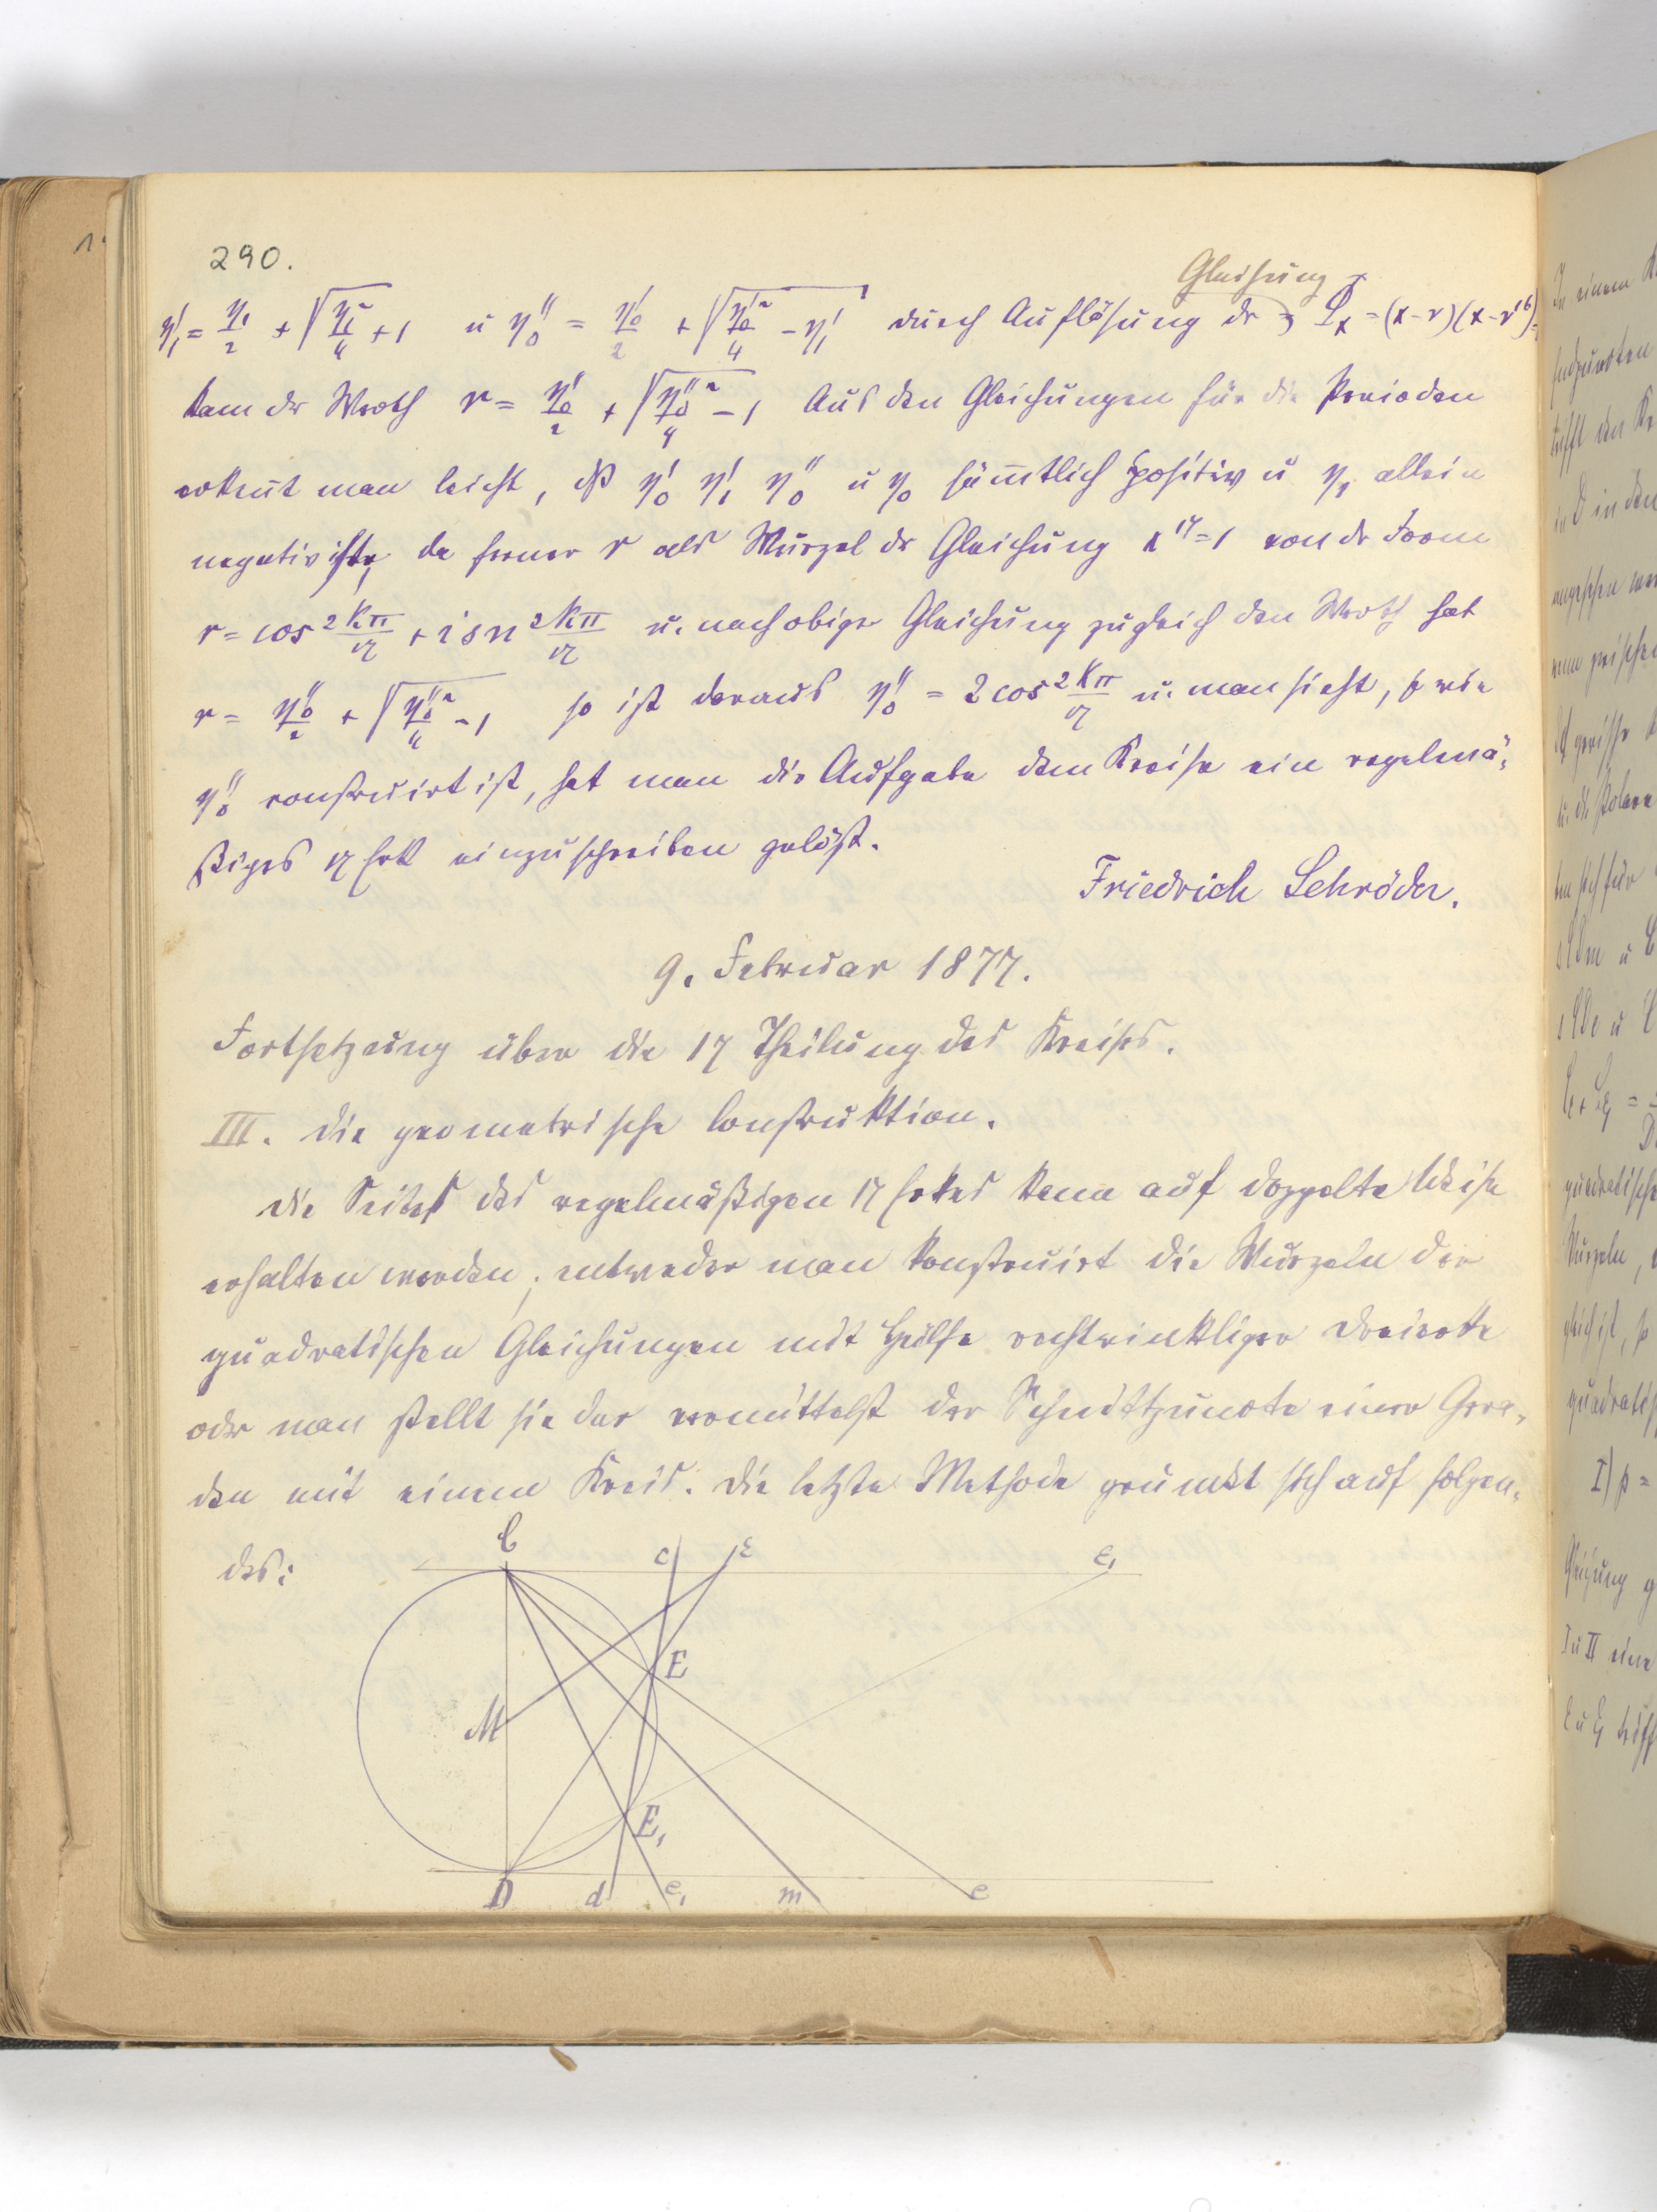 290.
Gleichung
η'₁ = η₁/2 + √(η₁²/4 + 1) u η''₀ = η'₀/2 + √(η'₀²/4 − η'₁) durch Auflösung dr Lx = (x−r)(x−r¹⁶)=
dann der Werth r = η''₀/2 + √(η''₀²/4 − 1) Aus den Gleichungen für die Perioden
erkent man leicht, dß η'₀ η'₁ η''₀ u η₀ sämtlich positiv u η₁ allein
negativ ist, da ferner r als Wurzel dr Gleichung x¹⁷=1 von dr Form
r = cos 2kπ/17 + i sn 2kπ/17 u. nach obiger Gleichung zugleich den Werth hat
r = η''₀/2 + √(η''₀²/4 − 1) so ist daraus η''₀ = 2 cos 2kπ/17 u. man sieht, so wie
η''₀ construirt ist, hat man die Aufgabe dem Kreise ein regelmä-
ßiges 17 Eck einzuschreiben gelöst.
Friedrich Schröder.
9. Februar 1877.
Fortsetzung über die 17 Theilung des Kreises.
III. Die geometrische Construktion.
Die Seite des regelmäßigen 17 Eckes kann auf doppelte Weise
erhalten werden; entweder man konstruirt die Wurzeln der
quadratischen Gleichungen mit Hülfe rechtwinkliger Dreiecke
oder man stellt sie dar vermittelst der Schnittpuncte einer Gera-
den mit einem Kreis. Die letzte Methode gründet sich auf folgen-
des:
C c ε ε₁
E
M
E₁
D d e₁ m e